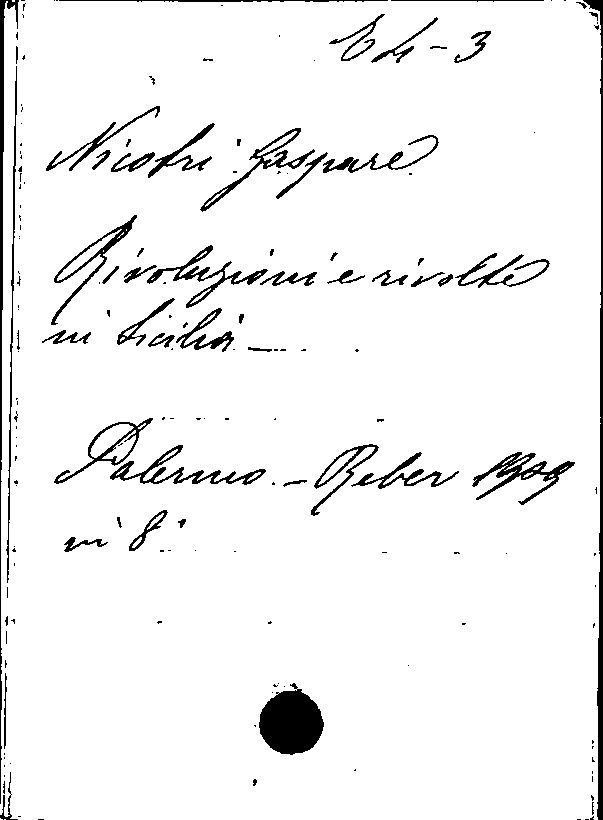 E4-3
Nicotri Gaspare
Rivoluzioni e rivolte
in Sicilia -
Palermo. - Reber 1909
in 8°